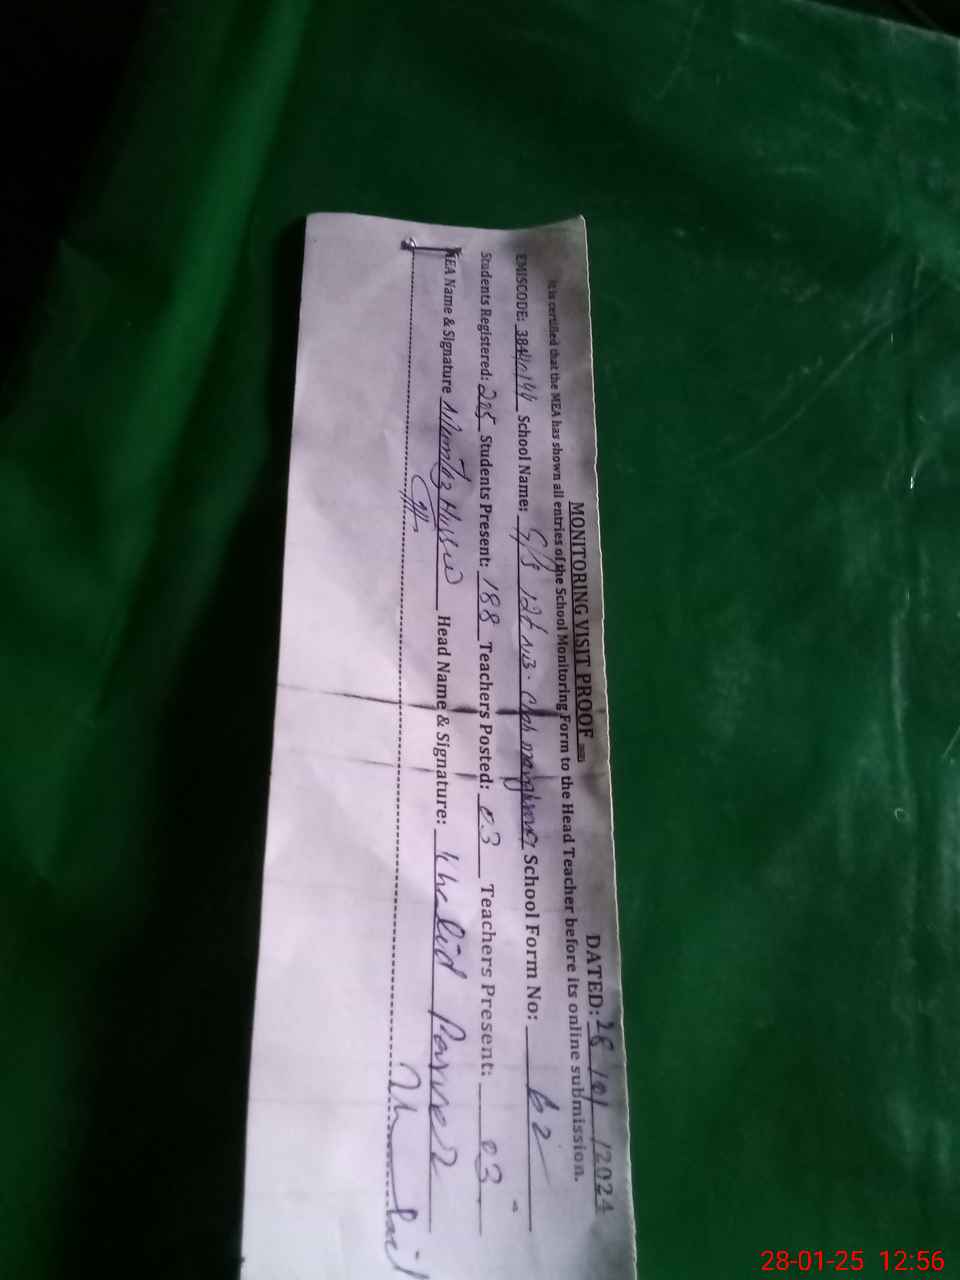 MONITORING VISIT PROOF
DATED: 28/01/2024
It is certified that the MEA has shown all entries of the School Monitoring Form to the Head Teacher before its online submission.
EMISCODE: School Name: School Form No: 62
Students Registered: 205 Students Present: 188 Teachers Posted: 03 Teachers Present: 03
MEA Name & Signature Head Name & Signature: Khalid Parvez
28-01-25 12:56